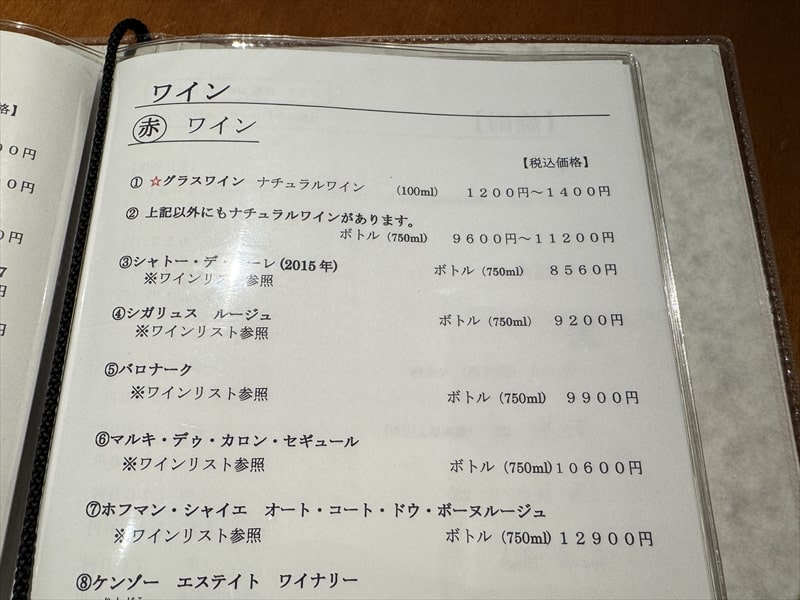 ワイン
赤 ワイン
【税込価格】
① ☆グラスワイン ナチュラルワイン (100ml) 1200円～1400円
② 上記以外にもナチュラルワインがあります。
ボトル (750ml) 9600円～11200円
③シャトー・デ・ーレ (2015年) ボトル (750ml) 8560円
※ワインリスト参照
④シガリュス ルージュ ボトル (750ml) 9200円
※ワインリスト参照
⑤バロナーク
※ワインリスト参照 ボトル (750ml) 9900円
⑥マルキ・デゥ・カロン・セギュール
※ワインリスト参照 ボトル (750ml) 10600円
⑦ホフマン・シャイエ オート・コート・ドウ・ボーヌルージュ
※ワインリスト参照 ボトル (750ml) 12900円
⑧ケンゾー エステイト ワイナリー